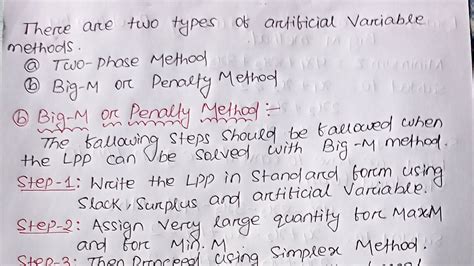 There are two types of artificial Variable
methods.
ⓐ Two-phase Method
ⓑ Big-M or Penalty Method
ⓑ Big-M or Penalty Method :-
The following steps should be followed when
the LPP can be solved with Big-M method.
Step-1: Write the LPP in Standard form using
Slack, Surplus and artificial Variable.
Step-2: Assign Very large quantity for Max M
and for Min. M
Step-3: Then Proceed using Simplex Method.